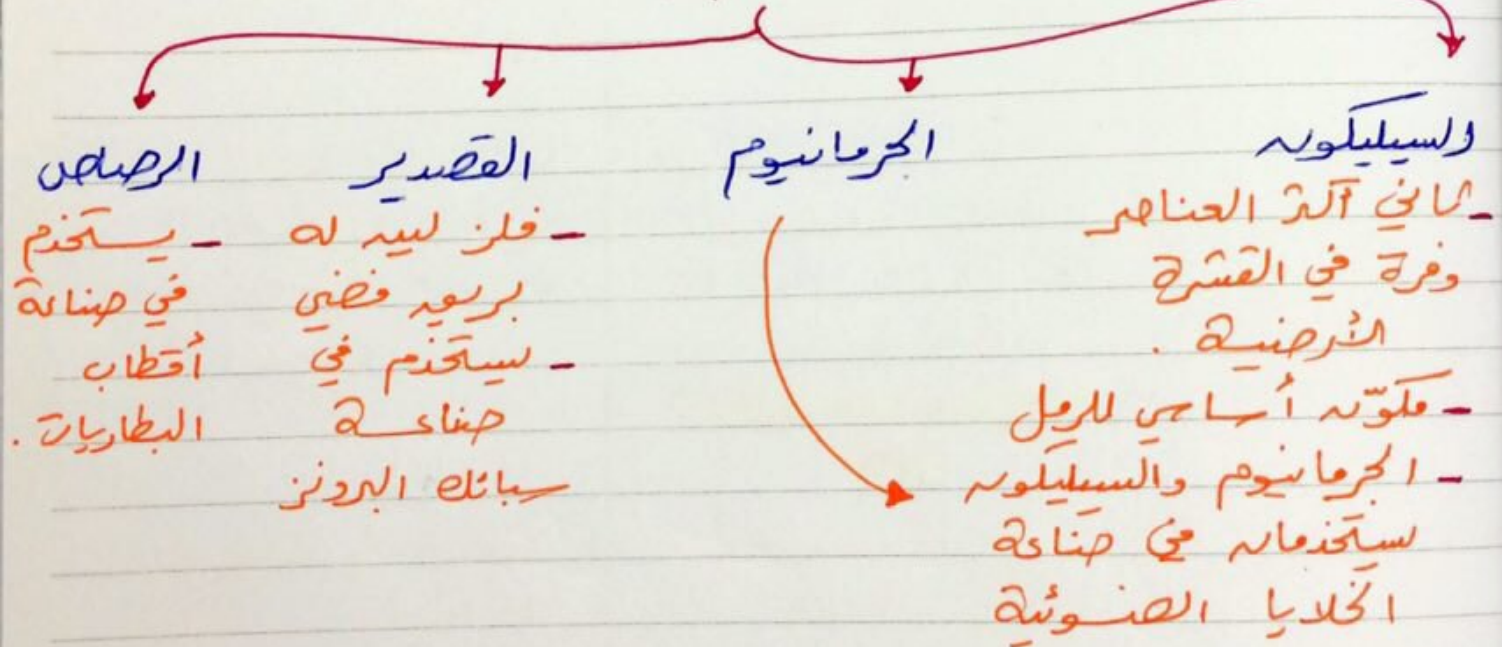 السيليكون
- ثاني أكثر العناصر
وفرة في القشرة
الأرضية .
- مكوّن أساسي للرمل
- الجرمانيوم والسيليكون
يستخدمان في صناعة
الخلايا الضوئية
الجرمانيوم
القصدير
- فلز لين له
بريق فضي
- يستخدم في
صناعة
سبائك البرونز
الرصاص
- يستخدم
في صناعة
أقطاب
البطاريات .